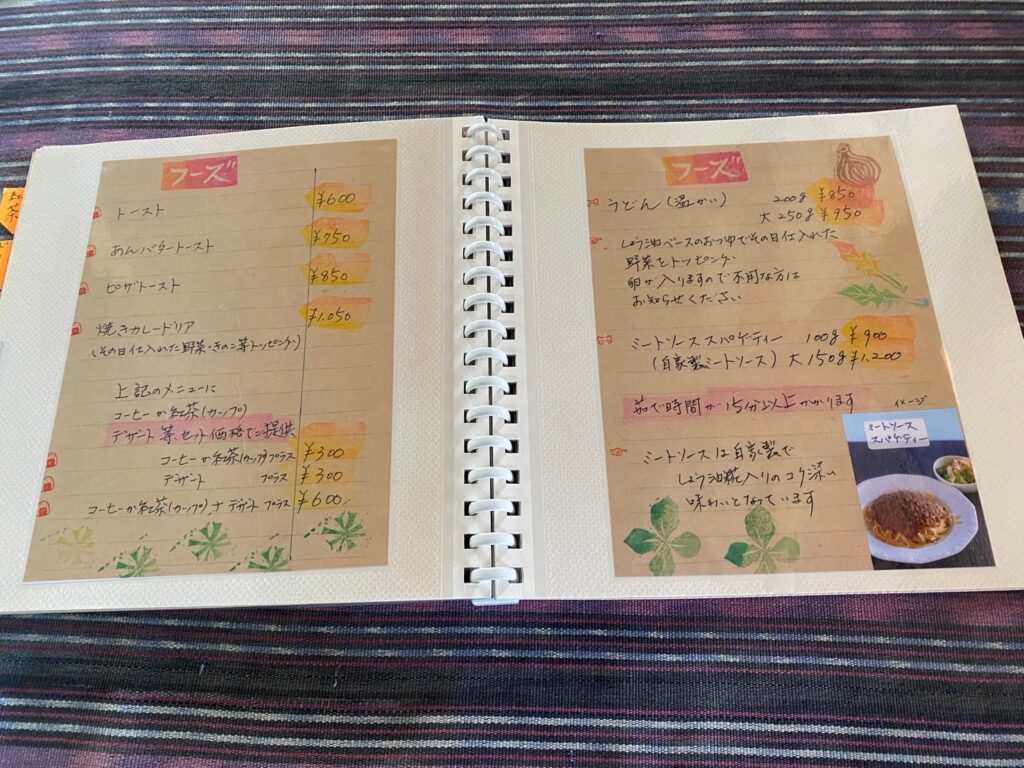 フーズ
トースト ¥600
あんバタートースト ¥750
ピザトースト ¥850
焼きカレードリア ¥1.050
(その日仕入れた野菜・きのこ等トッピング)
上記のメニューに
コーヒーか紅茶(カップ)
デザート等、セット価格でご提供
コーヒーか紅茶(カップ)プラス ¥300
デザート プラス ¥300
コーヒーか紅茶(カップ)+デザート プラス ¥600
フーズ
うどん(温かい) 200g ¥850
大 250g ¥950
しょう油ベースのおつゆでその日仕入れた
野菜をトッピング
卵が入りますので不用な方は
お知らせください
ミートソーススパゲーティー 100g ¥900
(自家製ミートソース) 大 150g ¥1,200
茹で時間が15分以上かかります
イメージ
ミートソース
スパゲーティー
ミートソースは自家製で
しょう油糀入りのコク深い
味わいとなっています